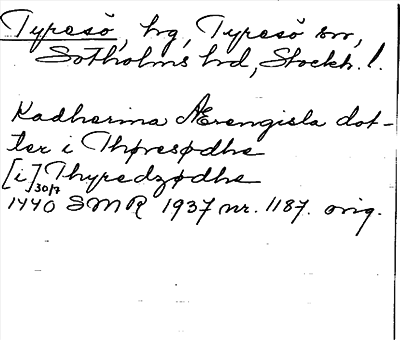 Tyresö, hg, Tyresö sn,
Sotholms hd, Stockh. l.
Kadherina Ærengisla dot-
ter i Thøresødhe
[i] Thyredzødhe
30/7
1440 SMR 1937 nr. 1187. orig.